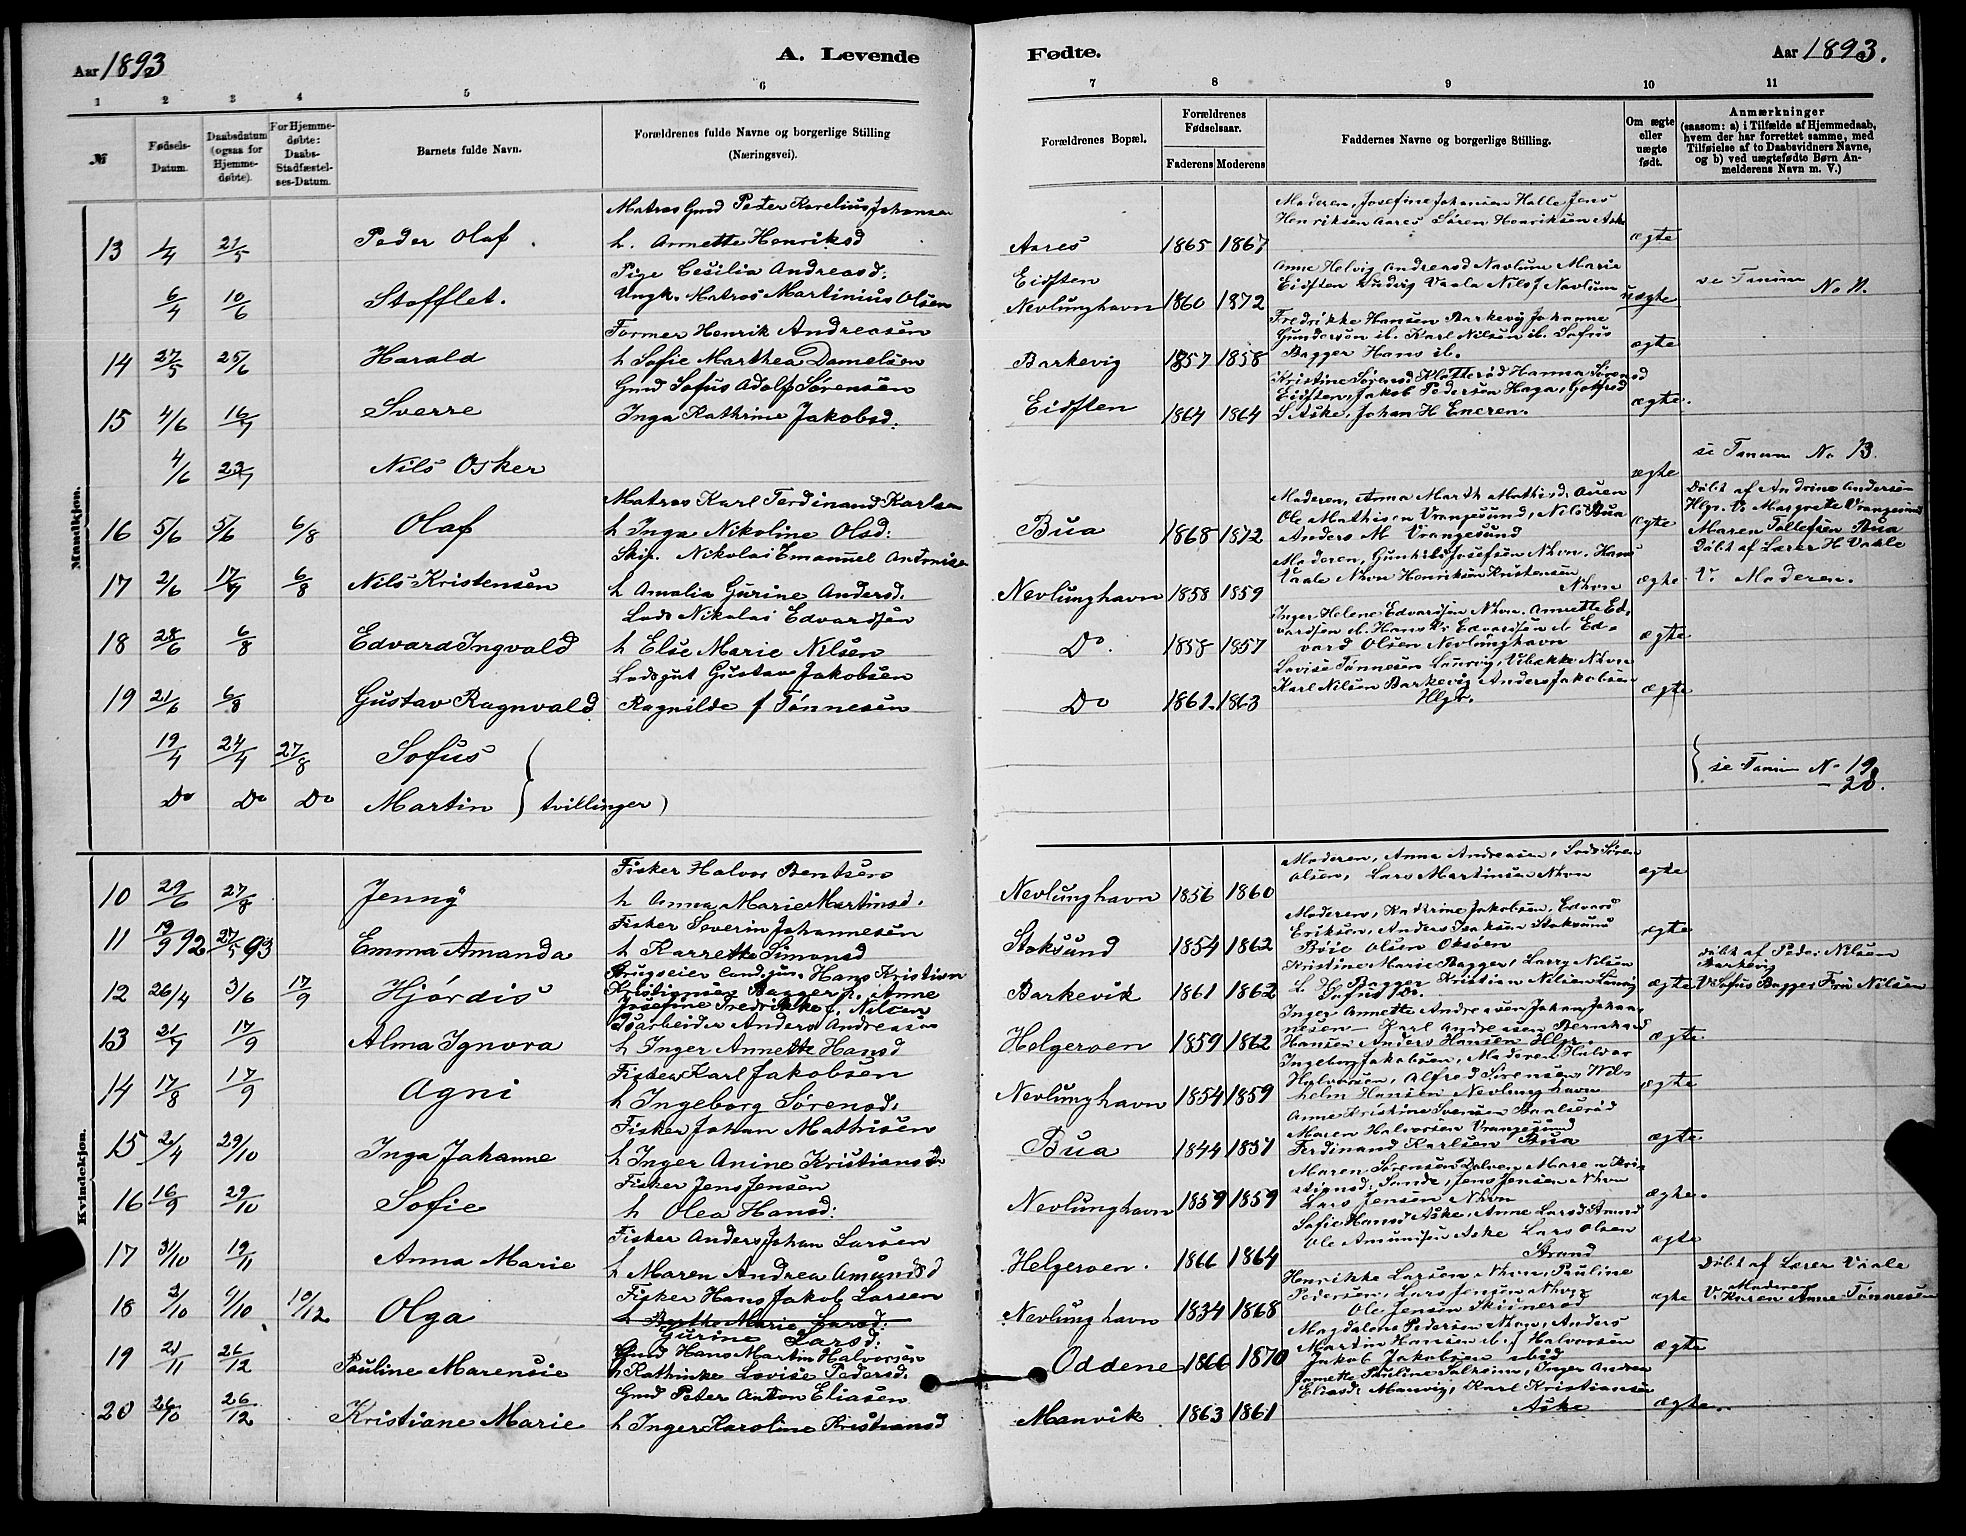 Aar 1893
A. Levende
Fødte.
Aar 1893.
1 2 3 4 5 6 7 8 9 10 11
№
Fødsels-Datum.
Daabsdatum (ogsaa for Hjemmedøbte).
For Hjemmedøbte: Daabs-Stadfæstelses-Datum.
Barnets fulde Navn.
Forældrenes fulde Navne og borgerlige Stilling (Næringsvei).
Forældrenes Bopæl.
Forældrenes Fødselsaar.
Faderens Moderens
Faddernes Navne og borgerlige Stilling.
Om ægte eller uægte født.
Anmærkninger
(saasom: a) i Tilfælde af Hjemmedaab, hvem der har forrettet samme, med Tilføielse af to Daabsvidners Navne, og b) ved uægtefødte Børn Anmelderens Navn m. V.)
Mandkjøn.
Matros Gmd Peter Karelius Johansen
Moderen, Josefine Johansen Halle Jens
Henriksen Aares Søren Henriksen Aske
13 1/4 21/5 Peder Olaf. h. Annette Henriksd Aares 1865 1867 ægte
Pige Cesilia Andreasd: Eidsten
Anne Helvig Andreasd Navlum Marie
6/4 10/6 Stofflet. Ungk. Matros Martinius Olsen Nevlunghavn 1860 1872 Eidsten Ludvig Vaala Nils J Nevlum uægte se Tanum No 11.
Former Henrik Andreasen
Fredrikke Hansen Barkevig Johanne
Gundersen ib. Karl Nilsen ib. Sofus
14 27/5 25/6 Harald h Sofie Marthea Danielsen Barkevig 1857 1858 Bagger Hans ib. ægte
Gmd Sofus Adolf Sørensen
Kristine Sørensd Klatterød Hanna Sørensd
Eidsten, Jakob Pedersen Haga, Gotfred
15 4/6 16/7 Sverre Inga Kathrine Jakobsd: Eidsten 1864 1864 S Aske, Johan H Eneren. ægte.
4/6 23/7 Nils Osker ægte se Tanum No 13.
Matros Karl Ferdinand Karlsen
Moderen, Anna Marth Mathisd: Auen
Døbt af Andrine Andersen
Ole Mathisen Vrangesund, Nils Bua
Hlgr. V. Margrete Vrangesund
16 5/6 5/6 6/8 Olaf h Inga Nikoline Olsd: Bua 1868 1872 Anders M Vrangesund ægte Maren Tollefsen Bua
Skip. Nikolai Emanuel Antonise
Moderen, Gunhild Josefsen Nhvn. Hans
Døbt af Lærer H Vaale
17 2/6 17/7 6/8 Nils Kristensen h Amalia Gurine Andersd. Nevlunghavn 1858 1859 Vaale Nhvn Henriksen Kristensen Nhvn ægte V. Moderen.
Lods Nikolai Edvardsen
Inger Helene Edvardsen Nhvn. Annette Ed-
vardsen ib. Hans Kr Edvardsen ib Ed-
18 28/6 6/8 Edvard Ingvald h Elise Marie Nilsen Do. 1858 1857 vard Olsen Nevlunghavn ægte
Lodsgut Gustav Jakobsen
Lovise Tønnesen Laurvig, Vibekke Nhvn
19 21/6 6/8 Gustav Ragnvald Ragnilde f Tønnesen Do 1861. 1863 Karl Nilsen Barkevig Anders Jakobsen Hlgr. ægte
19/4 24/4 27/8 Sofus
Do Do Do Martin } tvillinger) } se Tanum No 19
- 20.
Kvindekjøn.
Fisker Halvor Bentsen
Moderen, Anna Andreasen, Lods Søren
10 29/6 27/8 Jenny h Anna Marie Martinsd. Nevlunghavn 1856 1860 Olsen, Lars Martinsen Nhvn ægte
Fisker Severin Johannesen
Moderen, Kathrine Jakobsen, Edvard
Eriksen, Anders Isaksen Stoksund
11 19/9 92 27/5 93 Emma Amanda h Karrette Simonsd Stoksund 1854 1862 Bøie Olsen Oksøen ægte
Brugseier Cand. jur. Hans Kristian
Kristine Marie Bagger, Larry Nilsen
Døbt af Peder Nilsen Barkevig
12 26/4 3/6 17/9 Hjørdis Kristignsen Bagger h. Anne Josefine Fredrikke f. Nilsen Barkevik 1861 1862 L. H. Bagger Kristian Nilsen Laurvig ægte V Sofus Bagger Fru Nilsen
Isarbeider Anders Andreasen
Inger Annette Andreasen Johan Johan-
nesen - Karl Andreasen Bernhard
13 21/7 17/9 Alma Ignora h Inger Annette Hansd Helgeroen 1859 1862 Hansen Anders Hansen Hlgr. ægte.
Fisker Karl Jakobsen
Ingeborg Jakobsen, Moderen, Halvar
Halvorsen, Alfred Sørensen Wil-
14 17/8 17/9 Agni h Ingeborg Sørensd: Nevlunghavn 1854 1859 helm Hansen Nevlunghavn ægte
Fisker Johan Mathisen
Anne Kristine Svensen Baalserød
Maren Halvorsen Vrangesund
15 2/4 29/10 Inga Johanne h Inger Anine Kristiansd Bua 1844 1851 Ferdinand Karlsen Bua ægte
Fisker Jens Jensen
Maren Sørensen Dalven Maren Kri-
stignsd: Sande, Jens Jensen Nhvn
16 16/9 29/10 Sofie h Olea Hansd: Nevlunghavn 1859 1859 Lars Jensen Nhvn ægte.
Fisker Anders Johan Larsen
Sofie Hansd Aske, Anne Larsd Strand
Ole Amunsen Aske Lars Olsen
17 31/10 19/11 Anna Marie h Maren Andrea Amundsd Helgeroen. 1866 1864 Strand ægte
Fisker Hans Jakob Larsen
Henrikke Larsen Nhvn, Pauline
Døbt af Lærer Vaale
Pedersen, Lars Jensen Nhvn
Moderen
18 3/10 9/10 10/12 Olga h Berthe Marie Larsd: Gurine Larsd: Nevlunghavn 1834 1868 Ole Jensen Skiimerød ægte V. Karen Anne Tønnesen
Gmd Hans Martin Halvorsen
Magdalene Pedersen Nhvn, Anders
Martin Hansen ib. J Halvorsen
19 21/11 26/12 Pauline Marensie h Kathinke Lovise Pedersd. Oddene 1866 1870 Jakob Jakobsen ibid ægte
Gmd Peter Anton Eliasen
Annette Pauline Salksine, Inger Andrea
Eliasd: Manvig, Karl Kristiansen
20 26/10 26/12 Kristiane Marie h Inger Karoline Kristiansd Manvik. 1863 1861 Aske ægte.